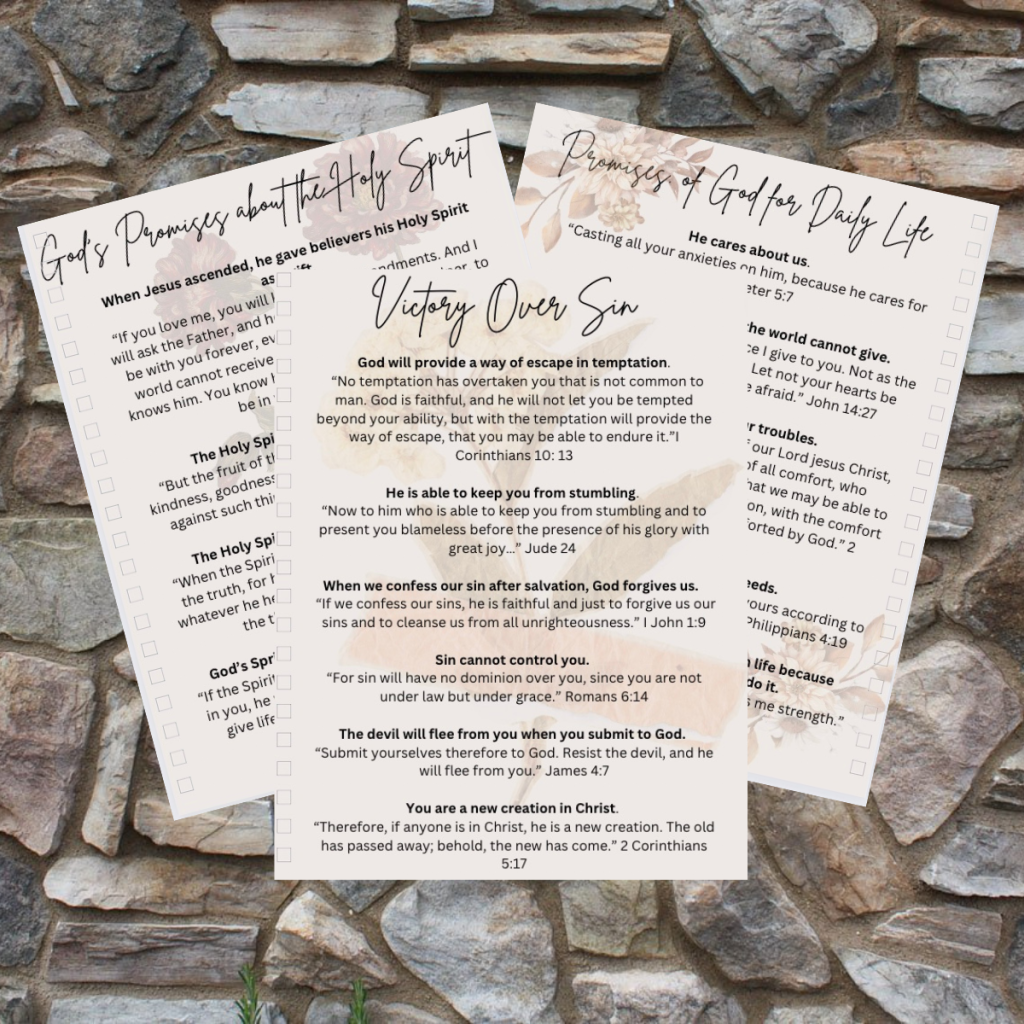 God's Promises about the Holy Spirit
When Jesus ascended, he gave believers his Holy Spirit
as
"If you love me, you will
will ask the Father, and
be with you forever,
world cannot receive
knows him. You know
be in
The Holy
"But the fruit of
kindness, goodness
against such
The Holy
"When the
the truth, for
whatever he
the
God's
"If the
in you, he
give life
Victory Over Sin
God will provide a way of escape in temptation.
"No temptation has overtaken you that is not common to
man. God is faithful, and he will not let you be tempted
beyond your ability, but with the temptation will provide the
way of escape, that you may be able to endure it."I
Corinthians 10: 13
He is able to keep you from stumbling.
"Now to him who is able to keep you from stumbling and to
present you blameless before the presence of his glory with
great joy..." Jude 24
When we confess our sin after salvation, God forgives us.
"If we confess our sins, he is faithful and just to forgive us our
sins and to cleanse us from all unrighteousness." I John 1:9
Sin cannot control you.
"For sin will have no dominion over you, since you are not
under law but under grace." Romans 6:14
The devil will flee from you when you submit to God.
"Submit yourselves therefore to God. Resist the devil, and he
will flee from you." James 4:7
You are a new creation in Christ.
"Therefore, if anyone is in Christ, he is a new creation. The old
has passed away; behold, the new has come." 2 Corinthians
5:17
Promises of God for Daily Life
He cares about us.
"Casting all your anxieties on him, because he cares for
5:7
the world cannot give.
I give to you. Not as the
Let not your hearts be
afraid." John 14:27
troubles.
our Lord jesus Christ,
of all comfort, who
that we may be able to
with the comfort
by God." 2
yours according to
Philippians 4:19
life because
do it.
me strength."